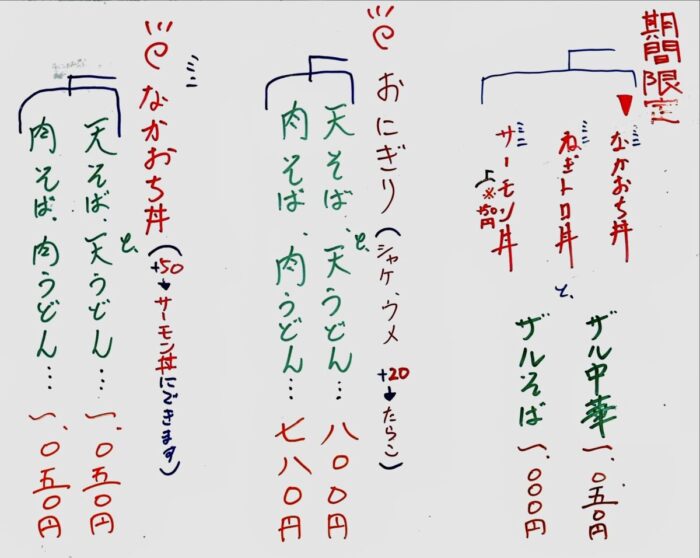 期間限定
ミニなかおち丼
ミニねぎトロ丼
ミニサーモン丼
上※+50円
と、
ザル中華 一、〇五〇円
ザルそば 一、〇〇〇円
おにぎり(シャケ、ウメ +20→たらこ)
と、
天そば、天うどん… 八〇〇円
肉そば、肉うどん… 七八〇円
ミニ
なかおち丼(+50→サーモン丼にできます)
と、
天そば、天うどん… 一、〇五〇円
肉そば、肉うどん… 一、〇五〇円